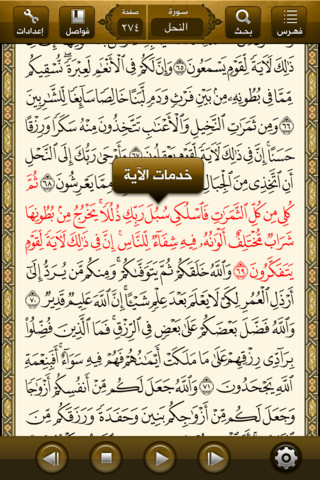 إعدادات
فواصل
صفحة
٢٧٤
سورة
النحل
بحث
فهرس
ذَٰلِكَ لَآيَةً لِّقَوْمٍ يَسْمَعُونَ ٦٥ وَإِنَّ لَكُمْ فِي الْأَنْعَٰمِ لَعِبْرَةً نُّسْقِيكُم
مِّمَّا فِي بُطُونِهِ مِن بَيْنِ فَرْثٍ وَدَمٍ لَّبَنًا خَالِصًا سَآئِغًا لِّلشَّٰرِبِينَ
٦٦ وَمِن ثَمَرَٰتِ النَّخِيلِ وَالْأَعْنَٰبِ تَتَّخِذُونَ مِنْهُ سَكَرًا وَرِزْقًا
حَسَنًا إِنَّ فِي ذَٰلِكَ لَآيَةً لِّقَوْمٍ يَعْقِلُونَ ٦٧ وَأَوْحَىٰ رَبُّكَ إِلَى النَّحْلِ
أَنِ اتَّخِذِي مِنَ الْجِبَالِ يَعْرِشُونَ ٦٨ ثُمَّ
خدمات الآية
كُلِي مِن كُلِّ الثَّمَرَٰتِ فَاسْلُكِي سُبُلَ رَبِّكِ ذُلُلًا يَخْرُجُ مِن بُطُونِهَا
شَرَابٌ مُّخْتَلِفٌ أَلْوَٰنُهُ فِيهِ شِفَآءٌ لِّلنَّاسِ إِنَّ فِي ذَٰلِكَ لَآيَةً لِّقَوْمٍ
يَتَفَكَّرُونَ ٦٩ وَاللَّهُ خَلَقَكُمْ ثُمَّ يَتَوَفَّىٰكُمْ وَمِنكُم مَّن يُرَدُّ إِلَىٰ
أَرْذَلِ الْعُمُرِ لِكَيْ لَا يَعْلَمَ بَعْدَ عِلْمٍ شَيْـًٔا إِنَّ اللَّهَ عَلِيمٌ قَدِيرٌ ٧٠
وَاللَّهُ فَضَّلَ بَعْضَكُمْ عَلَىٰ بَعْضٍ فِي الرِّزْقِ فَمَا الَّذِينَ فُضِّلُوا
بِرَآدِّي رِزْقِهِمْ عَلَىٰ مَا مَلَكَتْ أَيْمَٰنُهُمْ فَهُمْ فِيهِ سَوَآءٌ أَفَبِنِعْمَةِ
اللَّهِ يَجْحَدُونَ ٧١ وَاللَّهُ جَعَلَ لَكُم مِّنْ أَنفُسِكُمْ أَزْوَٰجًا
وَجَعَلَ لَكُم مِّنْ أَزْوَٰجِكُم بَنِينَ وَحَفَدَةً وَرَزَقَكُم مِّنَ